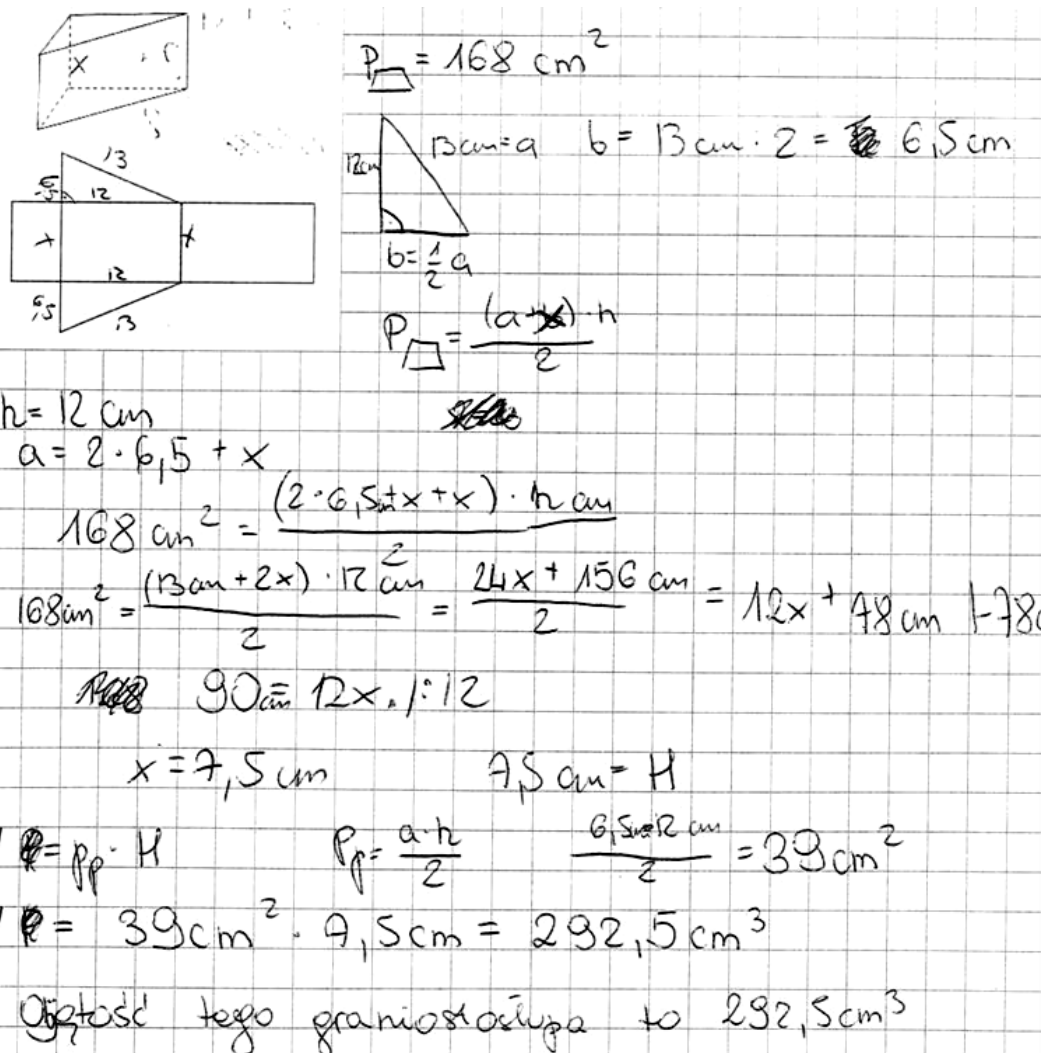 x
P = 168 cm²
12cm 13cm = a b = 13cm · 2 = 6,5cm
b = ½ a
13
6,5 12
x x
12
6,5 13
P = (a+x) · h / 2
h = 12 cm
a = 2 · 6,5 + x
168 cm² = (2 · 6,5cm + x + x) · 12 cm / 2
168cm² = (13cm + 2x) · 12 cm / 2 = 24x + 156 cm / 2 = 12x + 78cm |-78c
90cm = 12x . /:12
x = 7,5 cm 7,5 cm = H
= Pp · H Pp = a·h / 2 6,5cm·12 cm / 2 = 39cm²
= 39cm² · 7,5cm = 292,5cm³
Objętość tego graniostosłupa to 292,5cm³